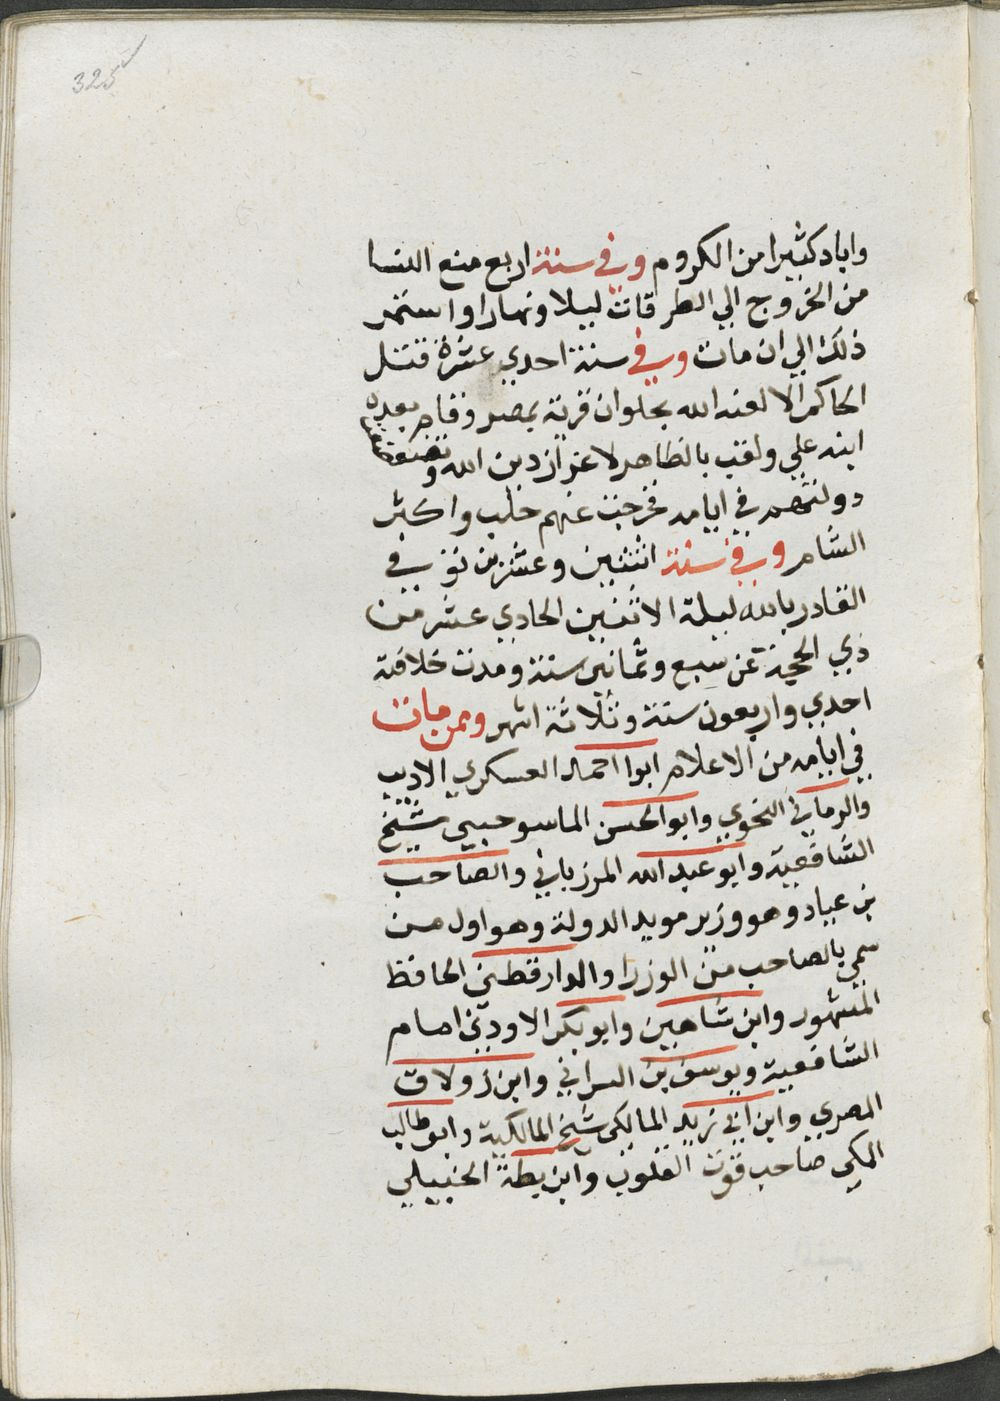 325
واباد كثيرا من الكروم وفي سنة اربع منع النسا
من الخروج الي الطرقات ليلا ونهارا واستمر
ذلك الي ان مات وفي سنة احدي عشرة قتل
الحاكم لعنه الله بحلوان قرية بمصر وقام بعده
ابنه علي ولقب بالظاهر لاعزاز دين الله وتضعضعت
دولتهم في ايامه فخرجت عنهم حلب واكثر
الشام وفي سنة اثنتين وعشرين توفي
القادر بالله ليلة الاثنين الحادي عشر من
ذي الحجة عن سبع وثمانين سنة ومدت خلافته
احدي واربعون سنة وثلاثة اشهر وممن مات
في ايامه من الاعلام ابوا احمد العسكري الاديب
والرماني النحوي وابو الحسن الماسوحبيي شيخ
الشافعية وابو عبد الله المرزباني والصاحب
بن عباد وهو وزير مويد الدولة وهو اول من
سمي بالصاحب من الوزرا والدارقطني الحافظ
المشهور وابن شاهين وابو بكر الاودني امام
الشافعية ويوسف بن السرافي وابن زولاق
المصري وابن ابي زيد المالكي شيخ المالكية وابو طالب
المكي صاحب قوت القلوب وابن بطة الحنبيلي